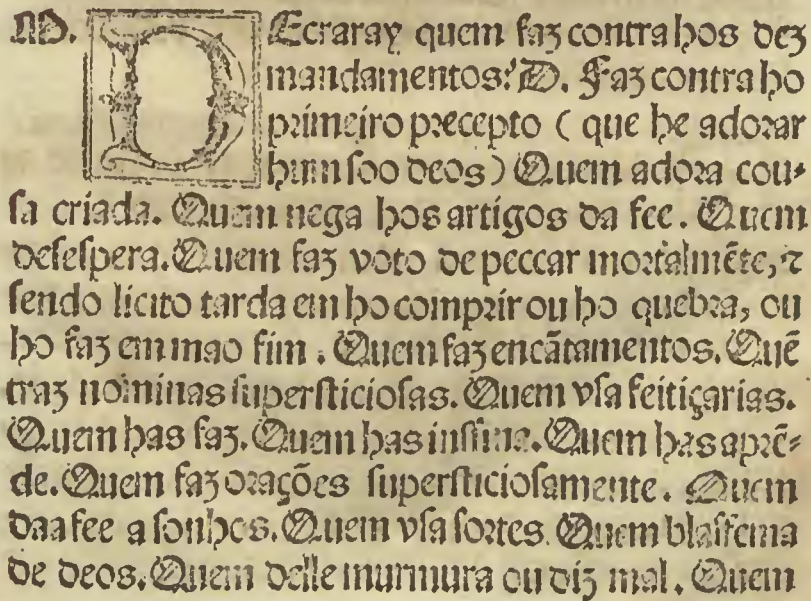 M. DEcraray quem faz contra hos dez
mandamentos? D. Faz contra ho
primeiro precepto ( que he adorar
hum soo deos) Quem adora cou⸗
sa criada. Quem nega hos artigos da fee. Quem
desespera. Quem faz voto de peccar mortalmẽte, ⁊
sendo licito tarda em ho comprir ou ho quebra, ou
ho faz em mao fim. Quem faz encãtamentos. Quẽ
traz nominas supersticiosas. Quem vsa feitiçarias.
Quem has faz. Quem has insina. Quem has aprẽ⸗
de. Quem faz orações supersticiosamente. Quem
daa fee a sonhos. Quem vsa sortes. Quem blasfema
de deos. Quem delle murmura ou diz mal. Quem